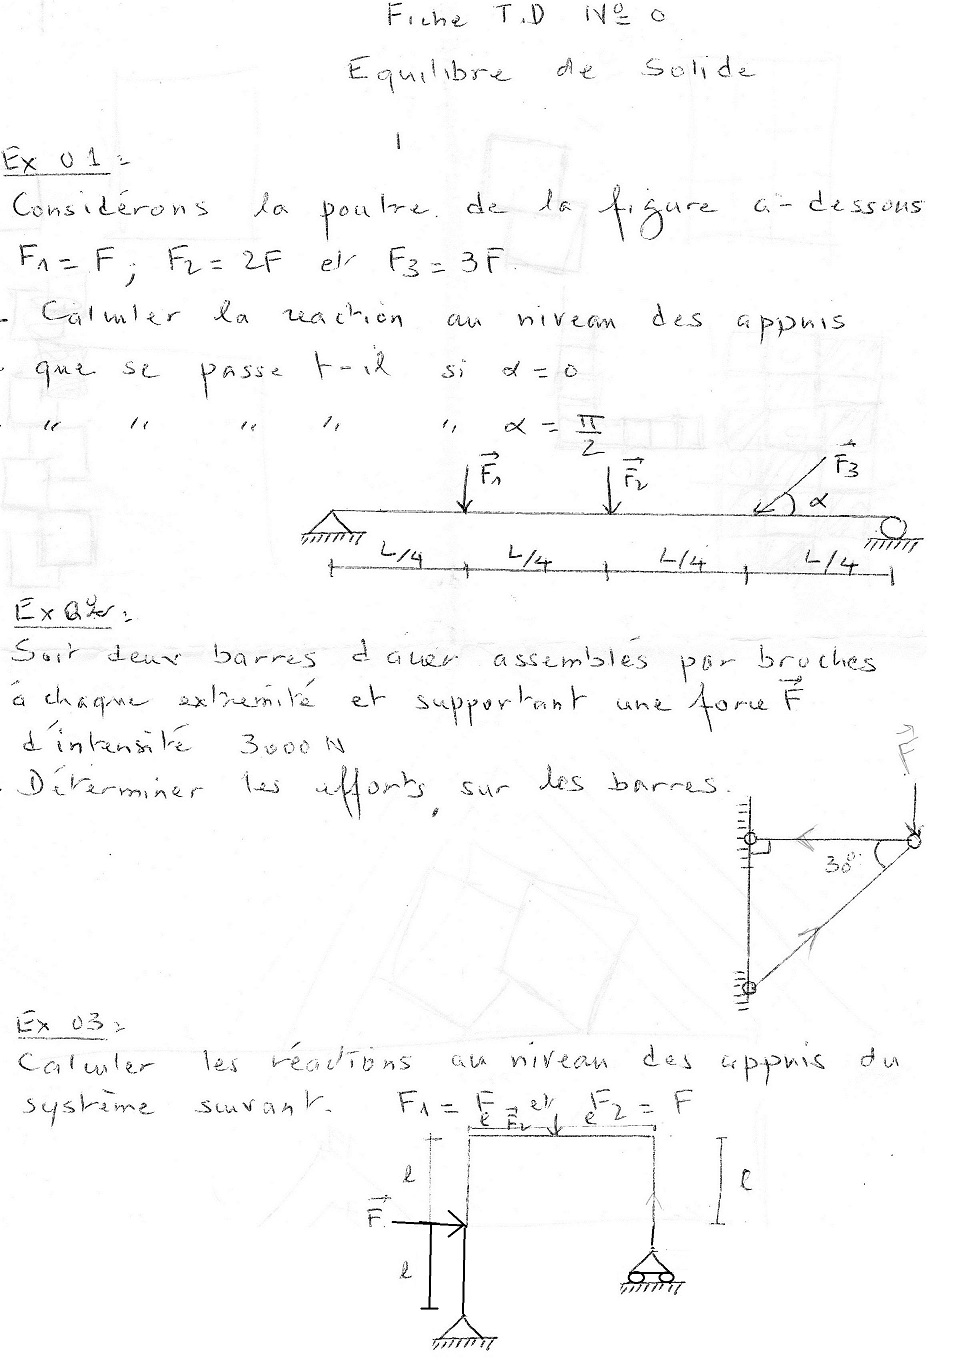 Fiche T.D N° 0
Equilibre de Solide
Ex 01:
Considérons la poutre de la figure ci-dessous
F1 = F ; F2 = 2F et F3 = 3F.
- Calculer la reaction au niveau des appuis
- que se passe t-il si α = 0
- " " " " " α = π/2
F1 F2 F3 α
L/4 L/4 L/4 L/4
Soit deux barres d'acier assemblés par broches
à chaque extremité et supportant une force F
d'intensité 3000 N
- Déterminer les efforts sur les barres.
F
30°
Ex 03:
Calculer les réactions au niveau des appuis du
système suivant. F1 = F et F2 = F
l F2 l
l l
F
l